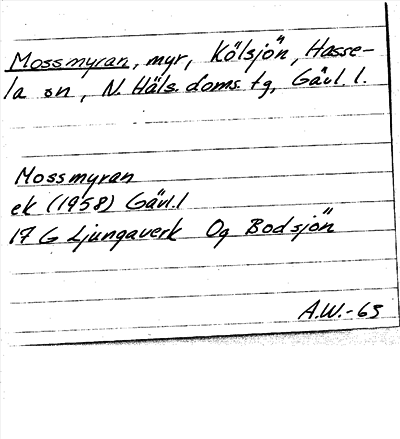 Mossmyran, myr, Kölsjön, Hasse-
la sn, N. Häls. doms. tg, Gävl. l.
Mossmyran
ek (1958) Gävl. l
17 G Ljungaverk Og Bodsjön
A.W.-65